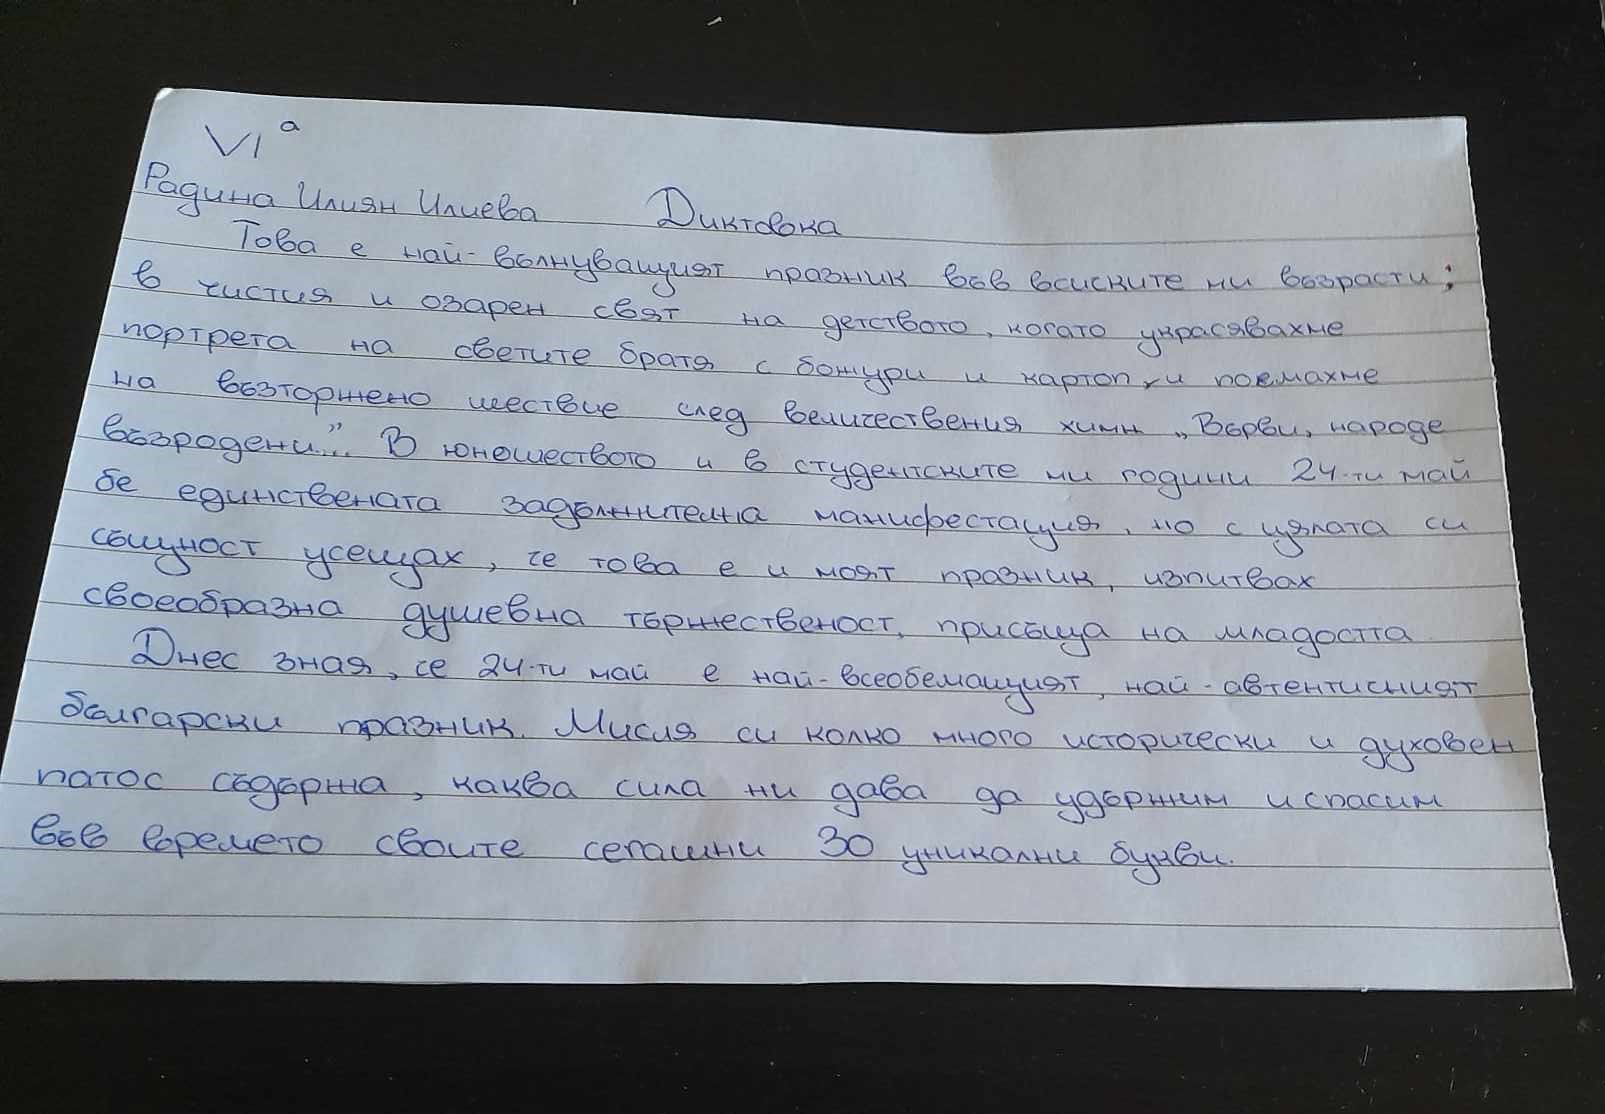 VI а
Радина Илиян Илиева Диктовка
Това е най-вълнуващият празник във всиските ни възрасти;
в чистия и озарен свят на детството, когато украсявахме
портрета на светите братя с божури и картоп, и поемахме
на възторжено шествие след величествения химн „Върви, народе
възродени..." В юношеството и в студентските ми години 24-ти май
бе единствената задължителна манифестация, но с цялата си
същност усещах, че това е и моят празник, изпитвах
своеобразна душевна тържественост, присъща на младостта
Днес зная, че 24-ти май е най-всеобемащият, най-автентисният
български празник. Мисля си колко много исторически и духовен
патос съдържа, каква сила ни дава да удържим и спасим
във времето своите сегашни 30 уникални букви.